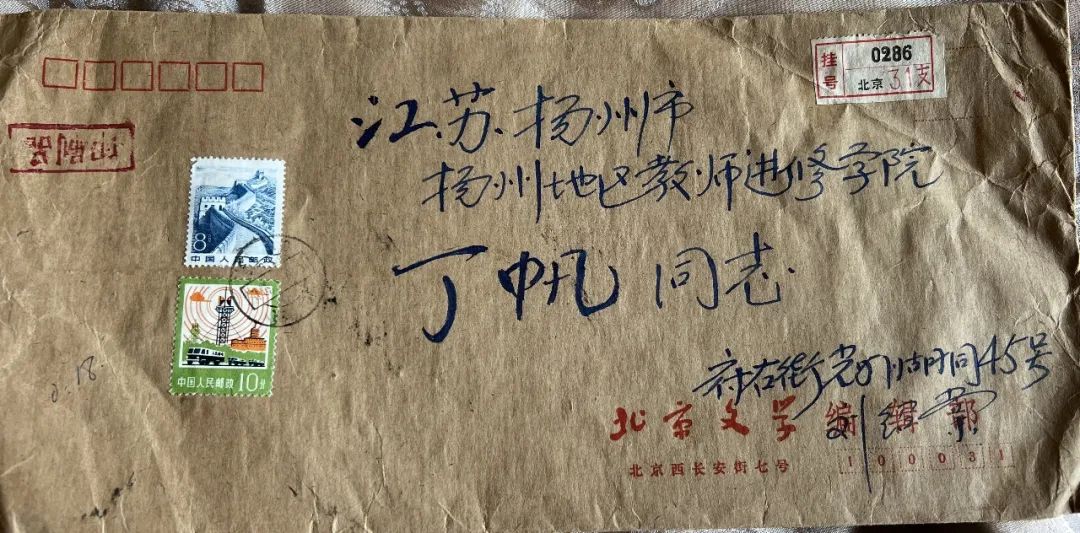 挂号 0286
北京 31支
印刷品
江苏.扬州市
扬州地区教师进修学院
丁帆 同志
8分
中国人民邮政
中国人民邮政 10分
0.18.
府右街光明胡同45号
刘绍棠
北京文学编辑部
北京西长安街七号 100031